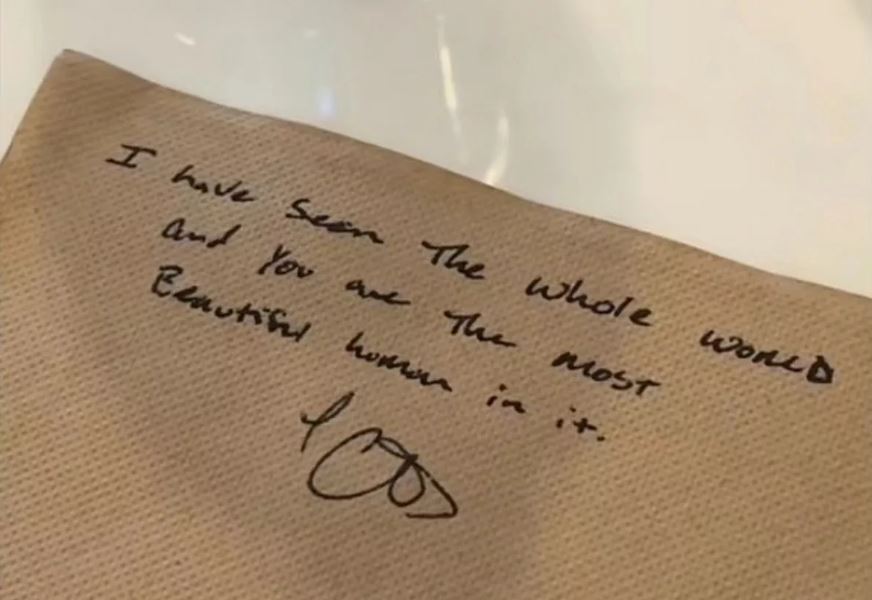 I have seen The whole WORLD
and You are The most
Beautiful human in it.